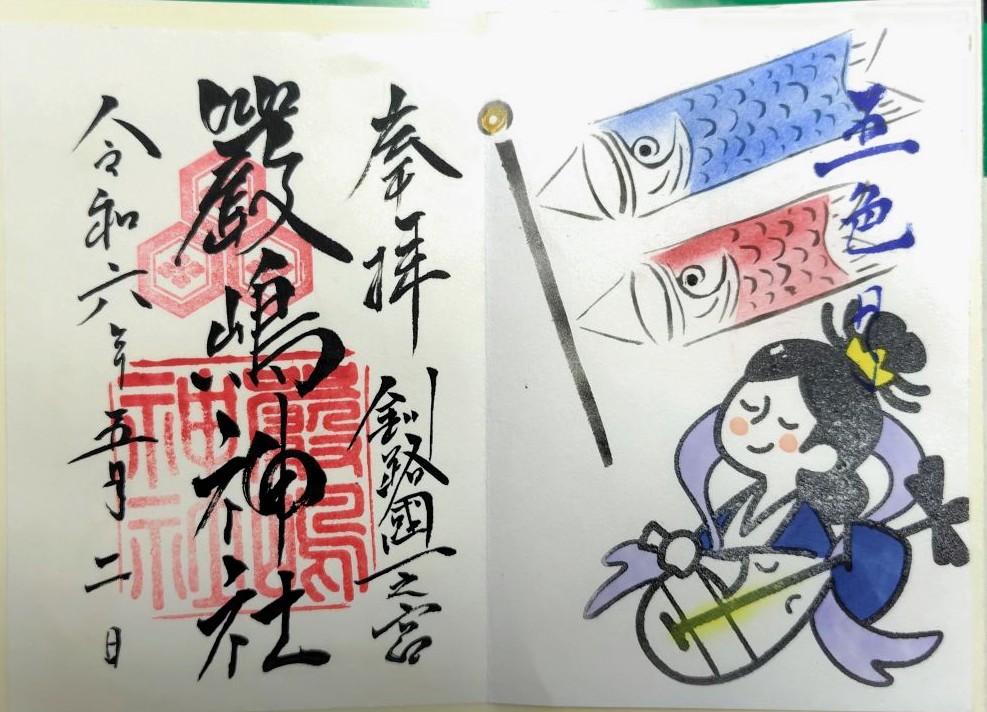 五色日
奉拝
釧路國一之宮
嚴嶋神社
嚴嶋神社
令和六年五月二日